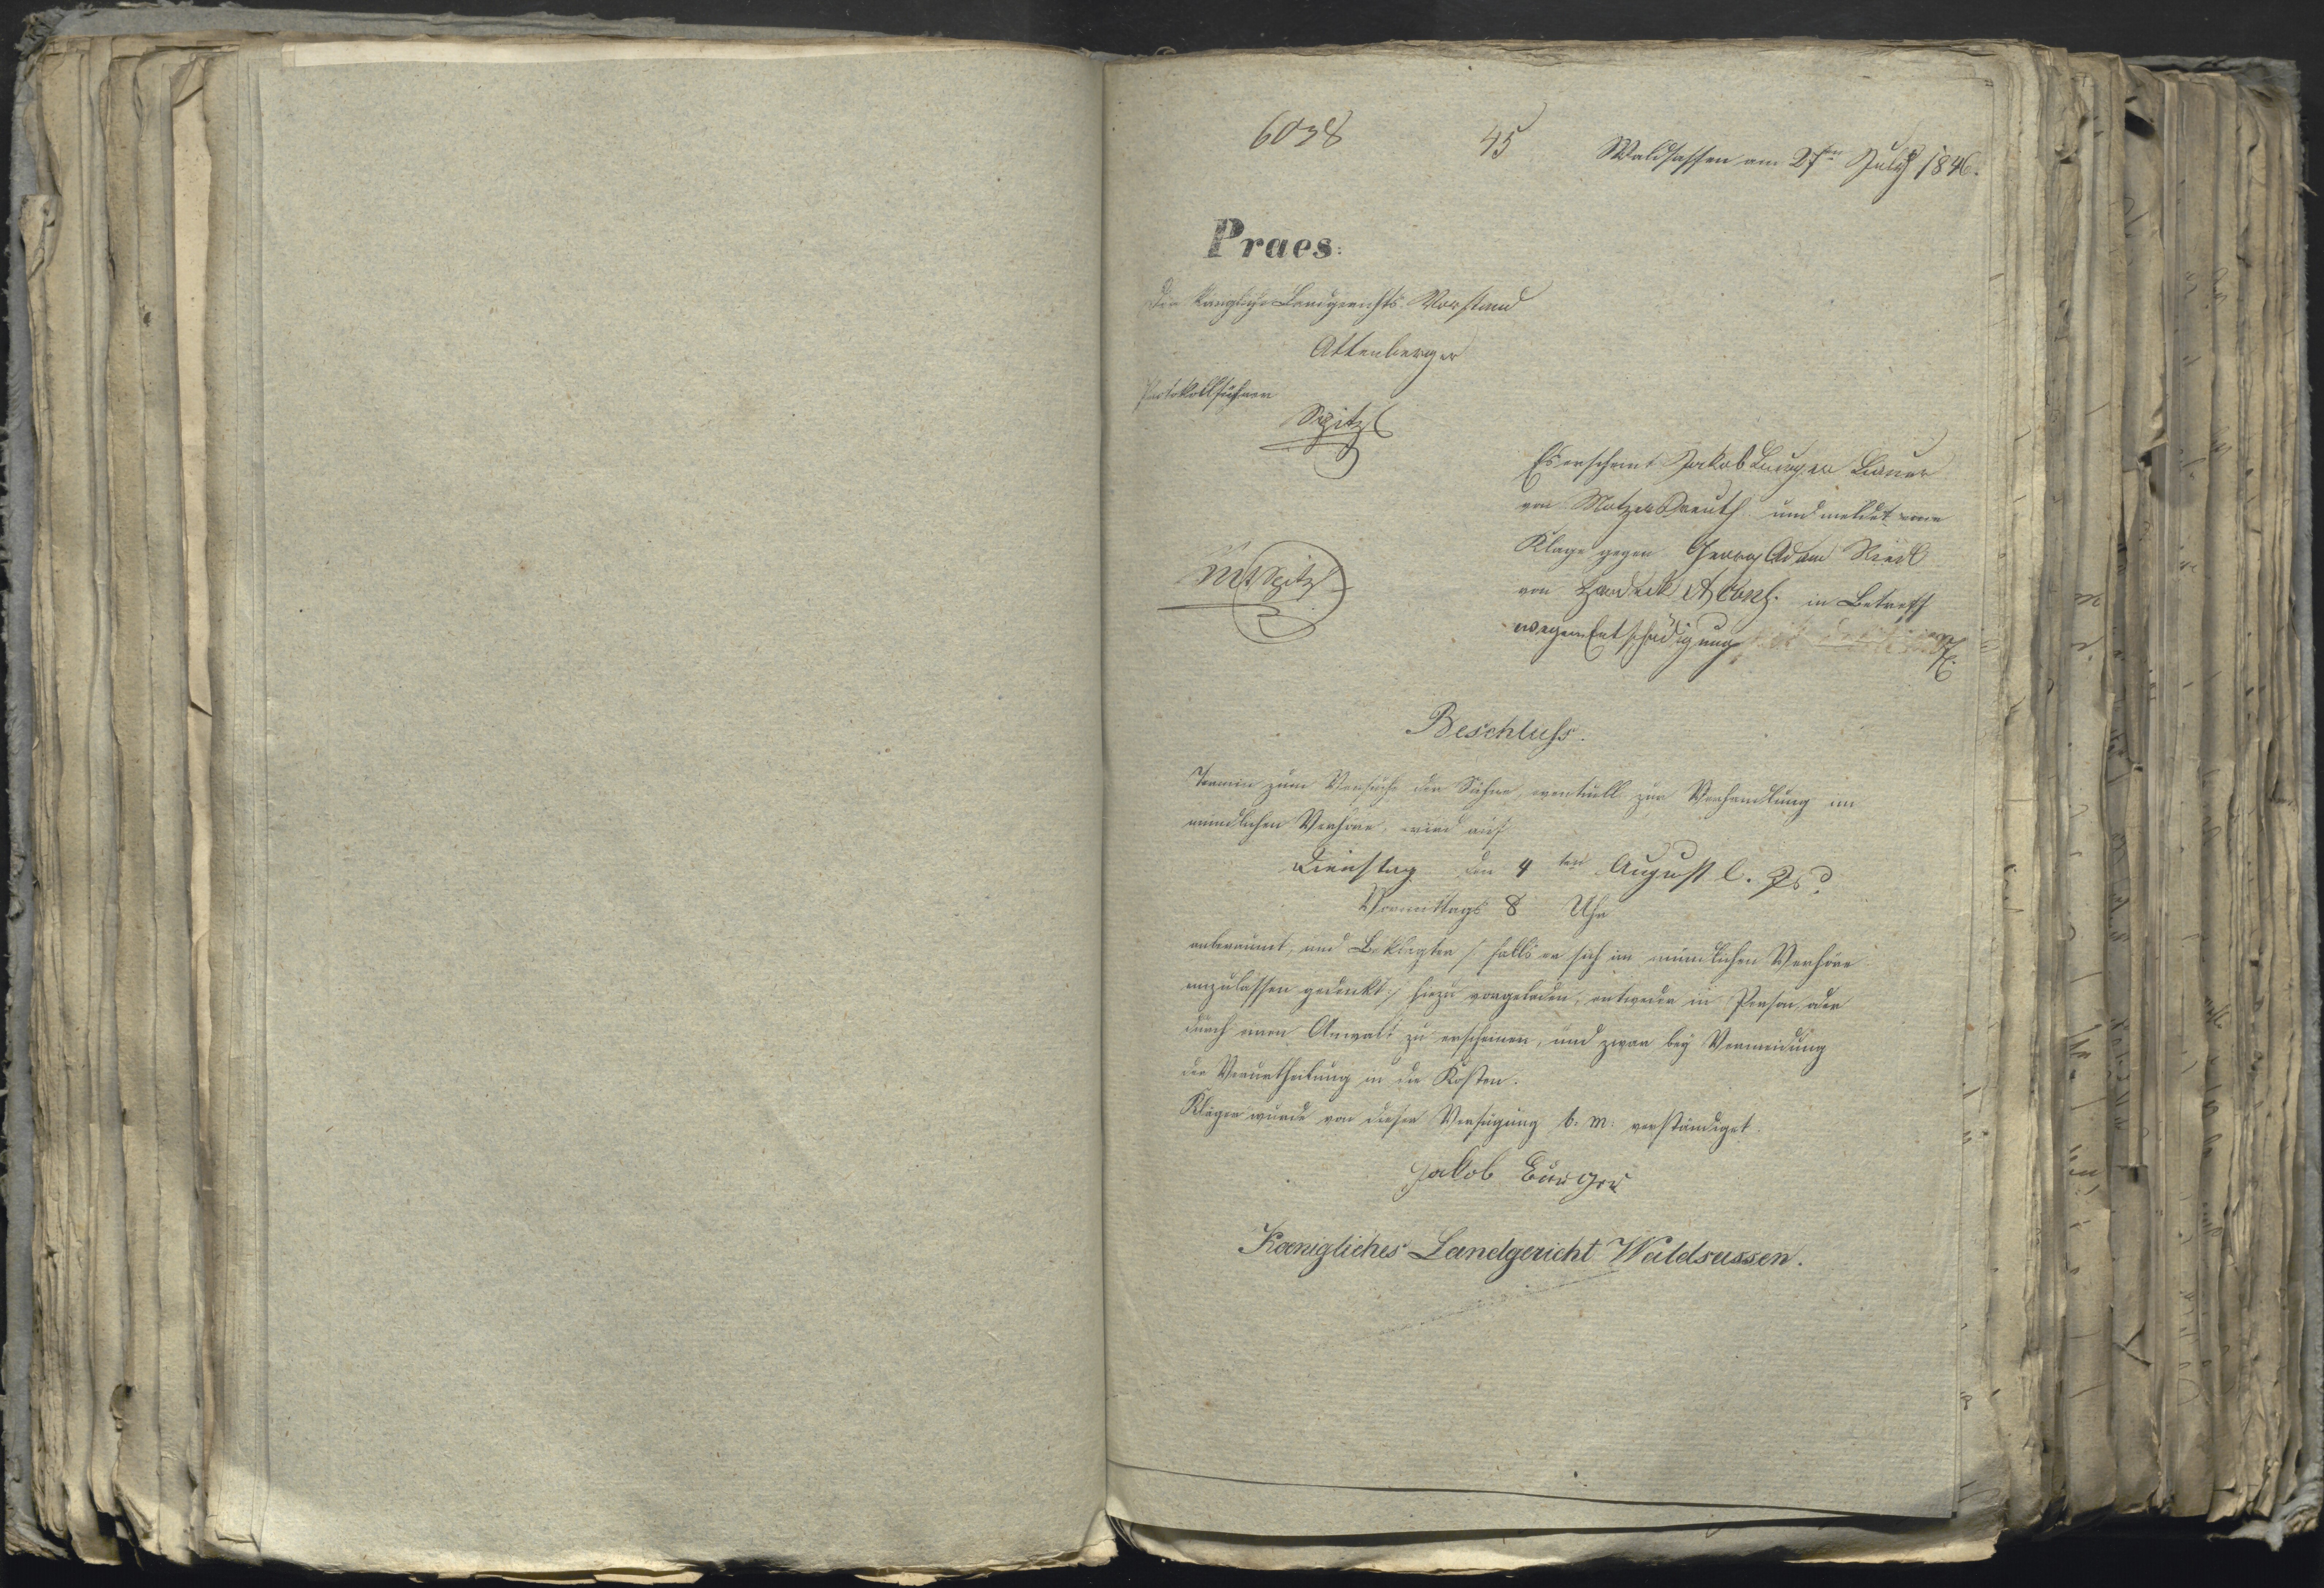 6038 45 Waldsassen am 27ten July 1846.
Praes:
Der königliche Landgerichts Vorstand
Attenberger
Protokollführer
Spitzl
Es erscheint Jakob Burger Bauer
von Matzersreuth und meldet eine
Klage gegen Georg Adam Riedl
von Hardeck et Cons. in Betreff
wegen Entschädigung
Spitzl
Beschluss.
Termin zum Versuche der Sühne, eventuell zur Verhandlung im
mündlichen Verhöre, wird auf
Dienstag den 4ten August l. Js
Vormittags 8 Uhr
anberaumt, und Beklagter /: falls er sich im mündlichen Verhöre
einzulassen gedenkt :/ hiezu vorgeladen, entweder in Person, oder
durch einen Anwalt zu erscheinen, und zwar bey Vermeidung
der Verurtheilung in die Kosten.
Kläger wurde von dieser Verfügung b. m. verständiget.
Jakob Burger
Koenigliches Landgericht Waldsassen.